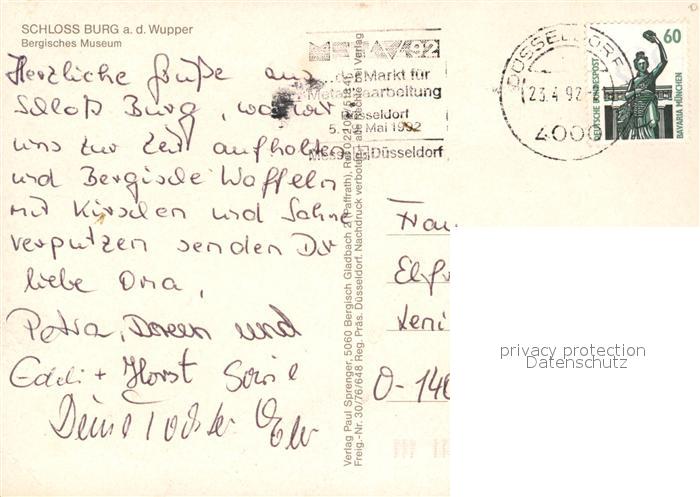 SCHLOSS BURG a. d. Wupper
Bergisches Museum
Herzliche Grüße aus
Schloß Burg, wo wir
uns zur Zeit aufhalten
und Bergische Waffeln
mit Kirschen und Sahne
verputzen senden Dir
liebe Oma,
Petra, Doreen und
Eddi + Horst sowie
Deine Tochter
92
Markt für
Metallbearbeitung
Düsseldorf
5. Mai 1992
Messe Düsseldorf
DÜSSELDORF
23.4.92
4000
60
DEUTSCHE BUNDESPOST
BAVARIA MÜNCHEN
Verlag Paul Sprenger, 5060 Bergisch Gladbach 2 (Paffrath), Ruf 0 22 02/5 18 41
Freig.-Nr. 30/76/648 Reg. Präs. Düsseldorf. Nachdruck verboten, alle Rechte bei Verlag
Frau
Elf
Leni
O-14
privacy protection
Datenschutz